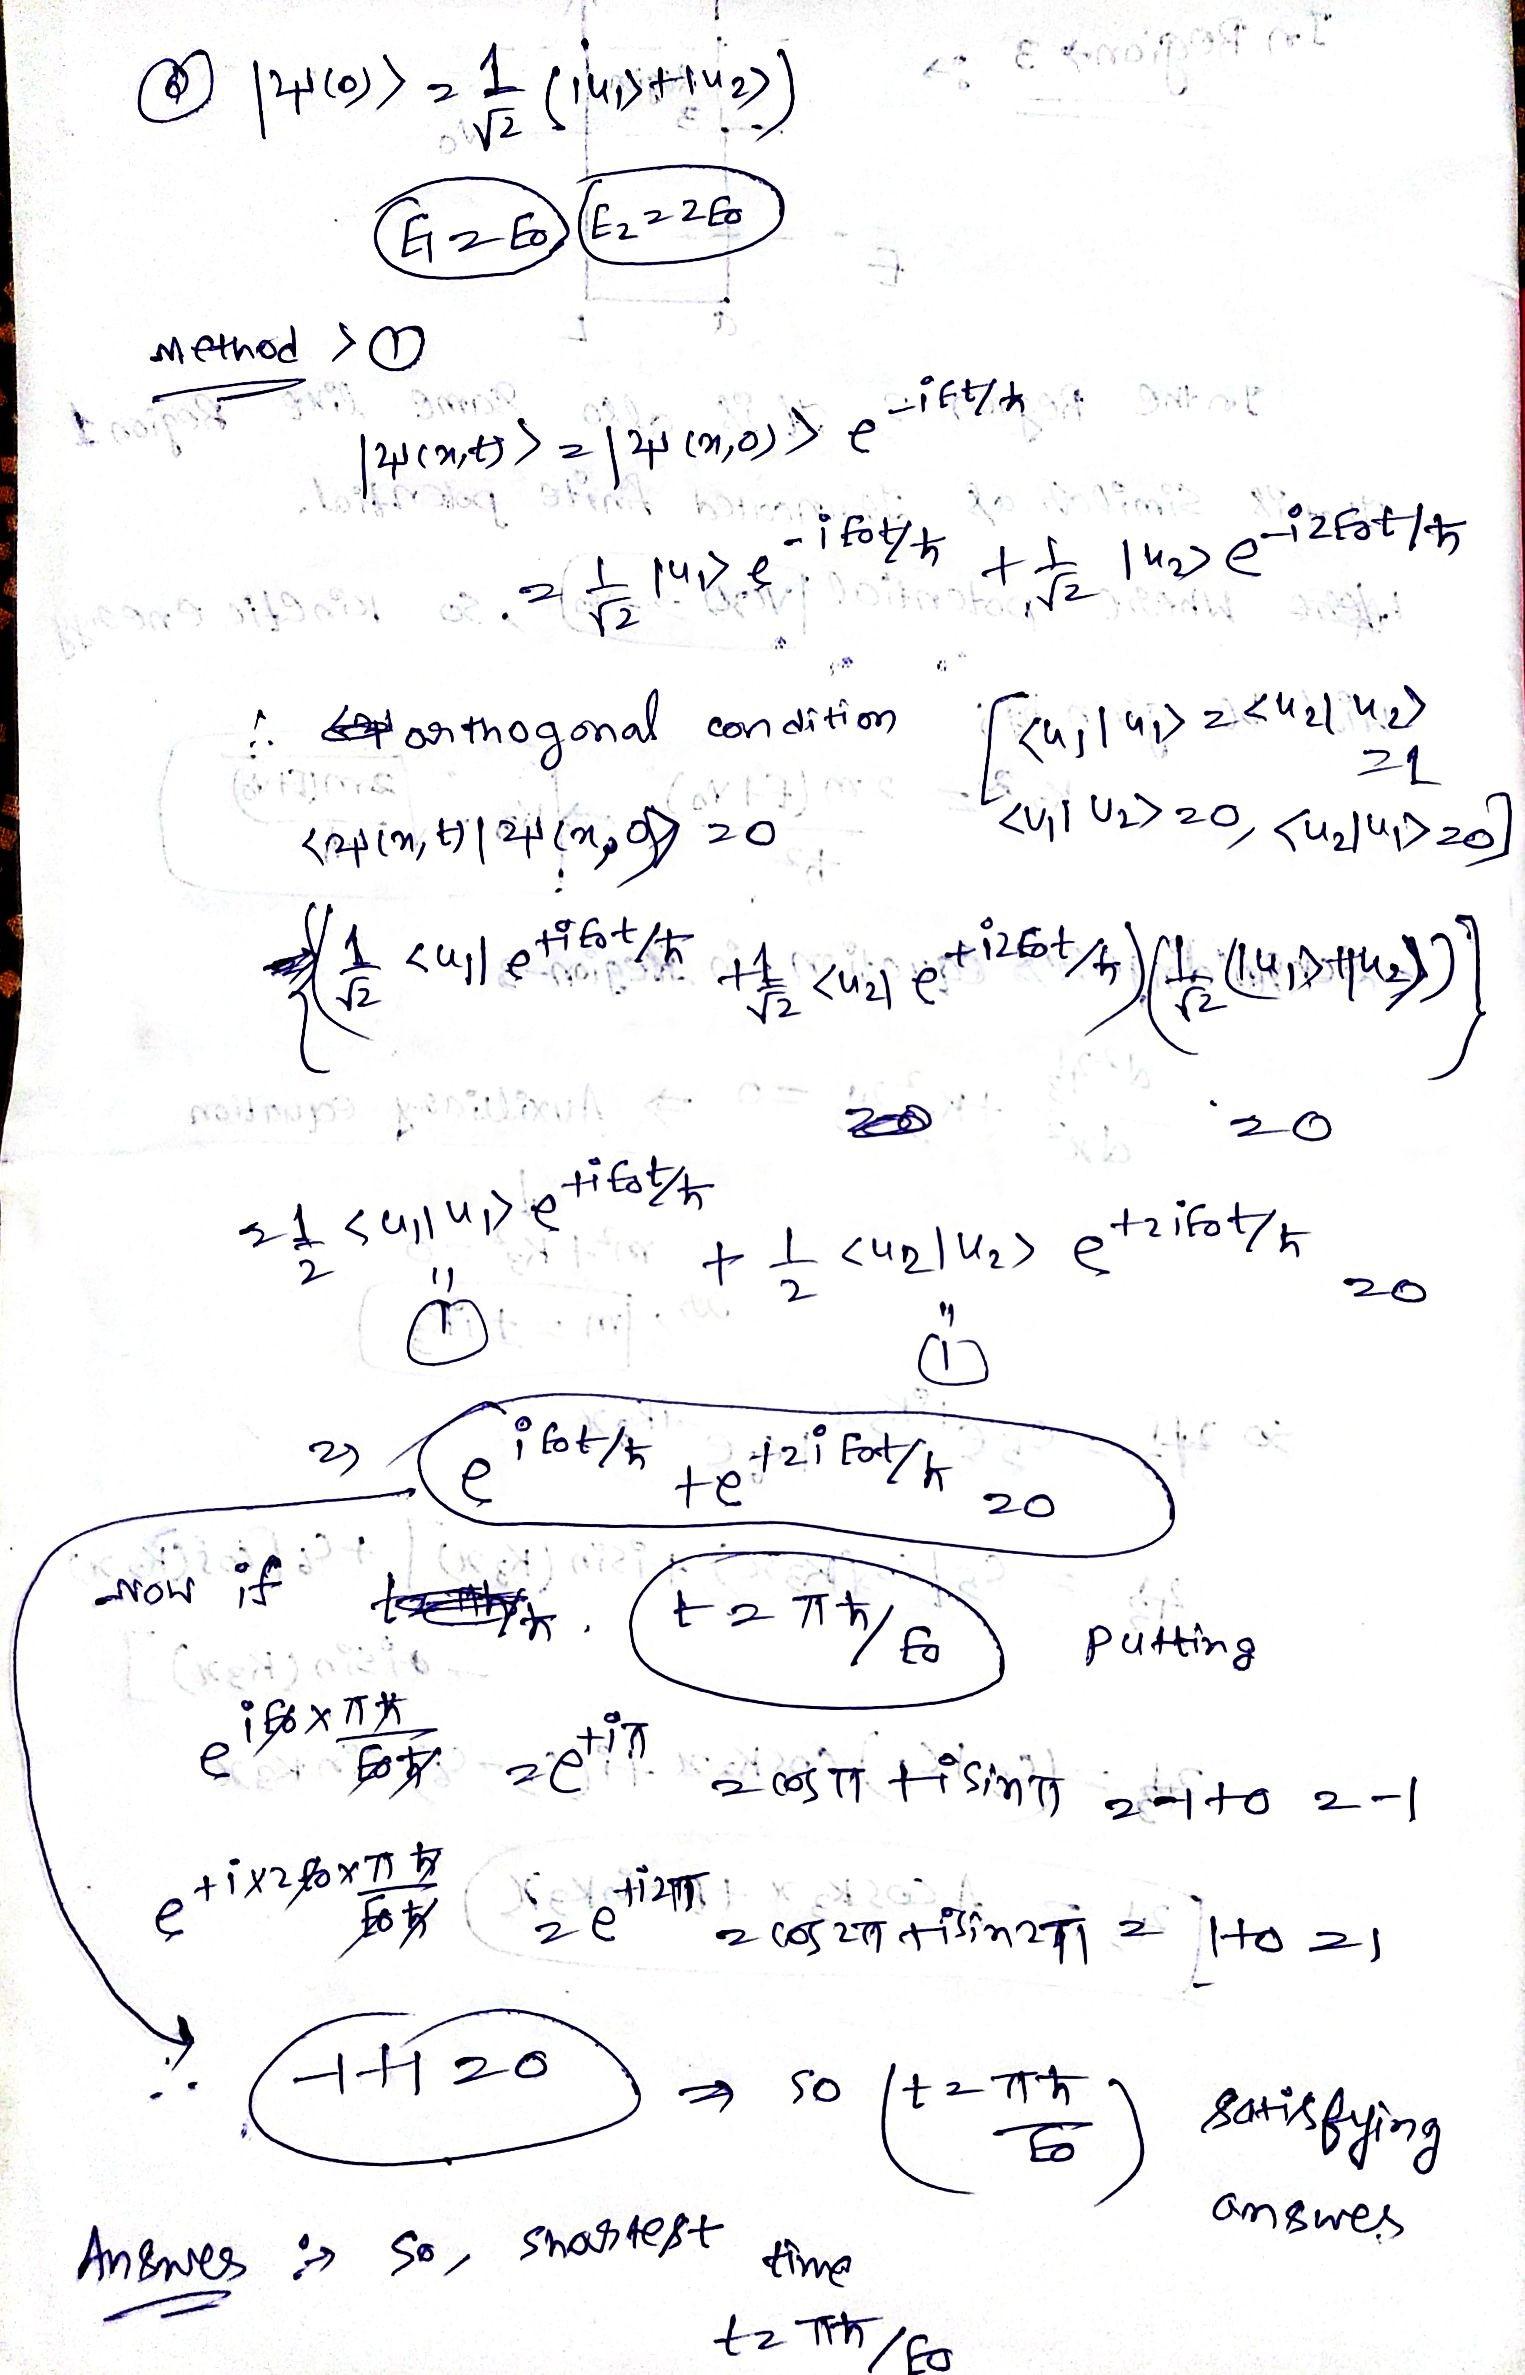 ⑥ |ψ(0)> = 1/√2 (|u₁>+|u₂>)
E₁ = E₀ E₂ = 2E₀
Method > ①
|ψ(x,t)> = |ψ(x,0)> e^{-iEt/ħ}
= 1/√2 |u₁> e^{-iE₀t/ħ} + 1/√2 |u₂> e^{-i2E₀t/ħ}
∴ orthogonal condition [<u₁|u₁> = <u₂|u₂> = 1
<ψ(x,t)|ψ(x,0)> = 0 <u₁|u₂> = 0, <u₂|u₁> = 0]
{(1/√2 <u₁| e^{+iE₀t/ħ} + 1/√2 <u₂| e^{+i2E₀t/ħ}) (1/√2 (|u₁>+|u₂>))}
= 0
= 1/2 <u₁|u₁> e^{+iE₀t/ħ} + 1/2 <u₂|u₂> e^{+2iE₀t/ħ} = 0
" ① " ①
⇒ e^{iE₀t/ħ} + e^{+2iE₀t/ħ} = 0
Now if t = πħ/E₀ putting
e^{iE₀×πħ/E₀ħ} = e^{+iπ} = cosπ + isinπ = -1+0 = -1
e^{+i×2E₀×πħ/E₀ħ} = e^{+i2π} = cos2π + isin2π = 1+0 = 1
∴ -1+1 = 0 ⇒ so (t = πħ/E₀) satisfying
answer
Answer :→ So, shortest time
t = πħ/E₀